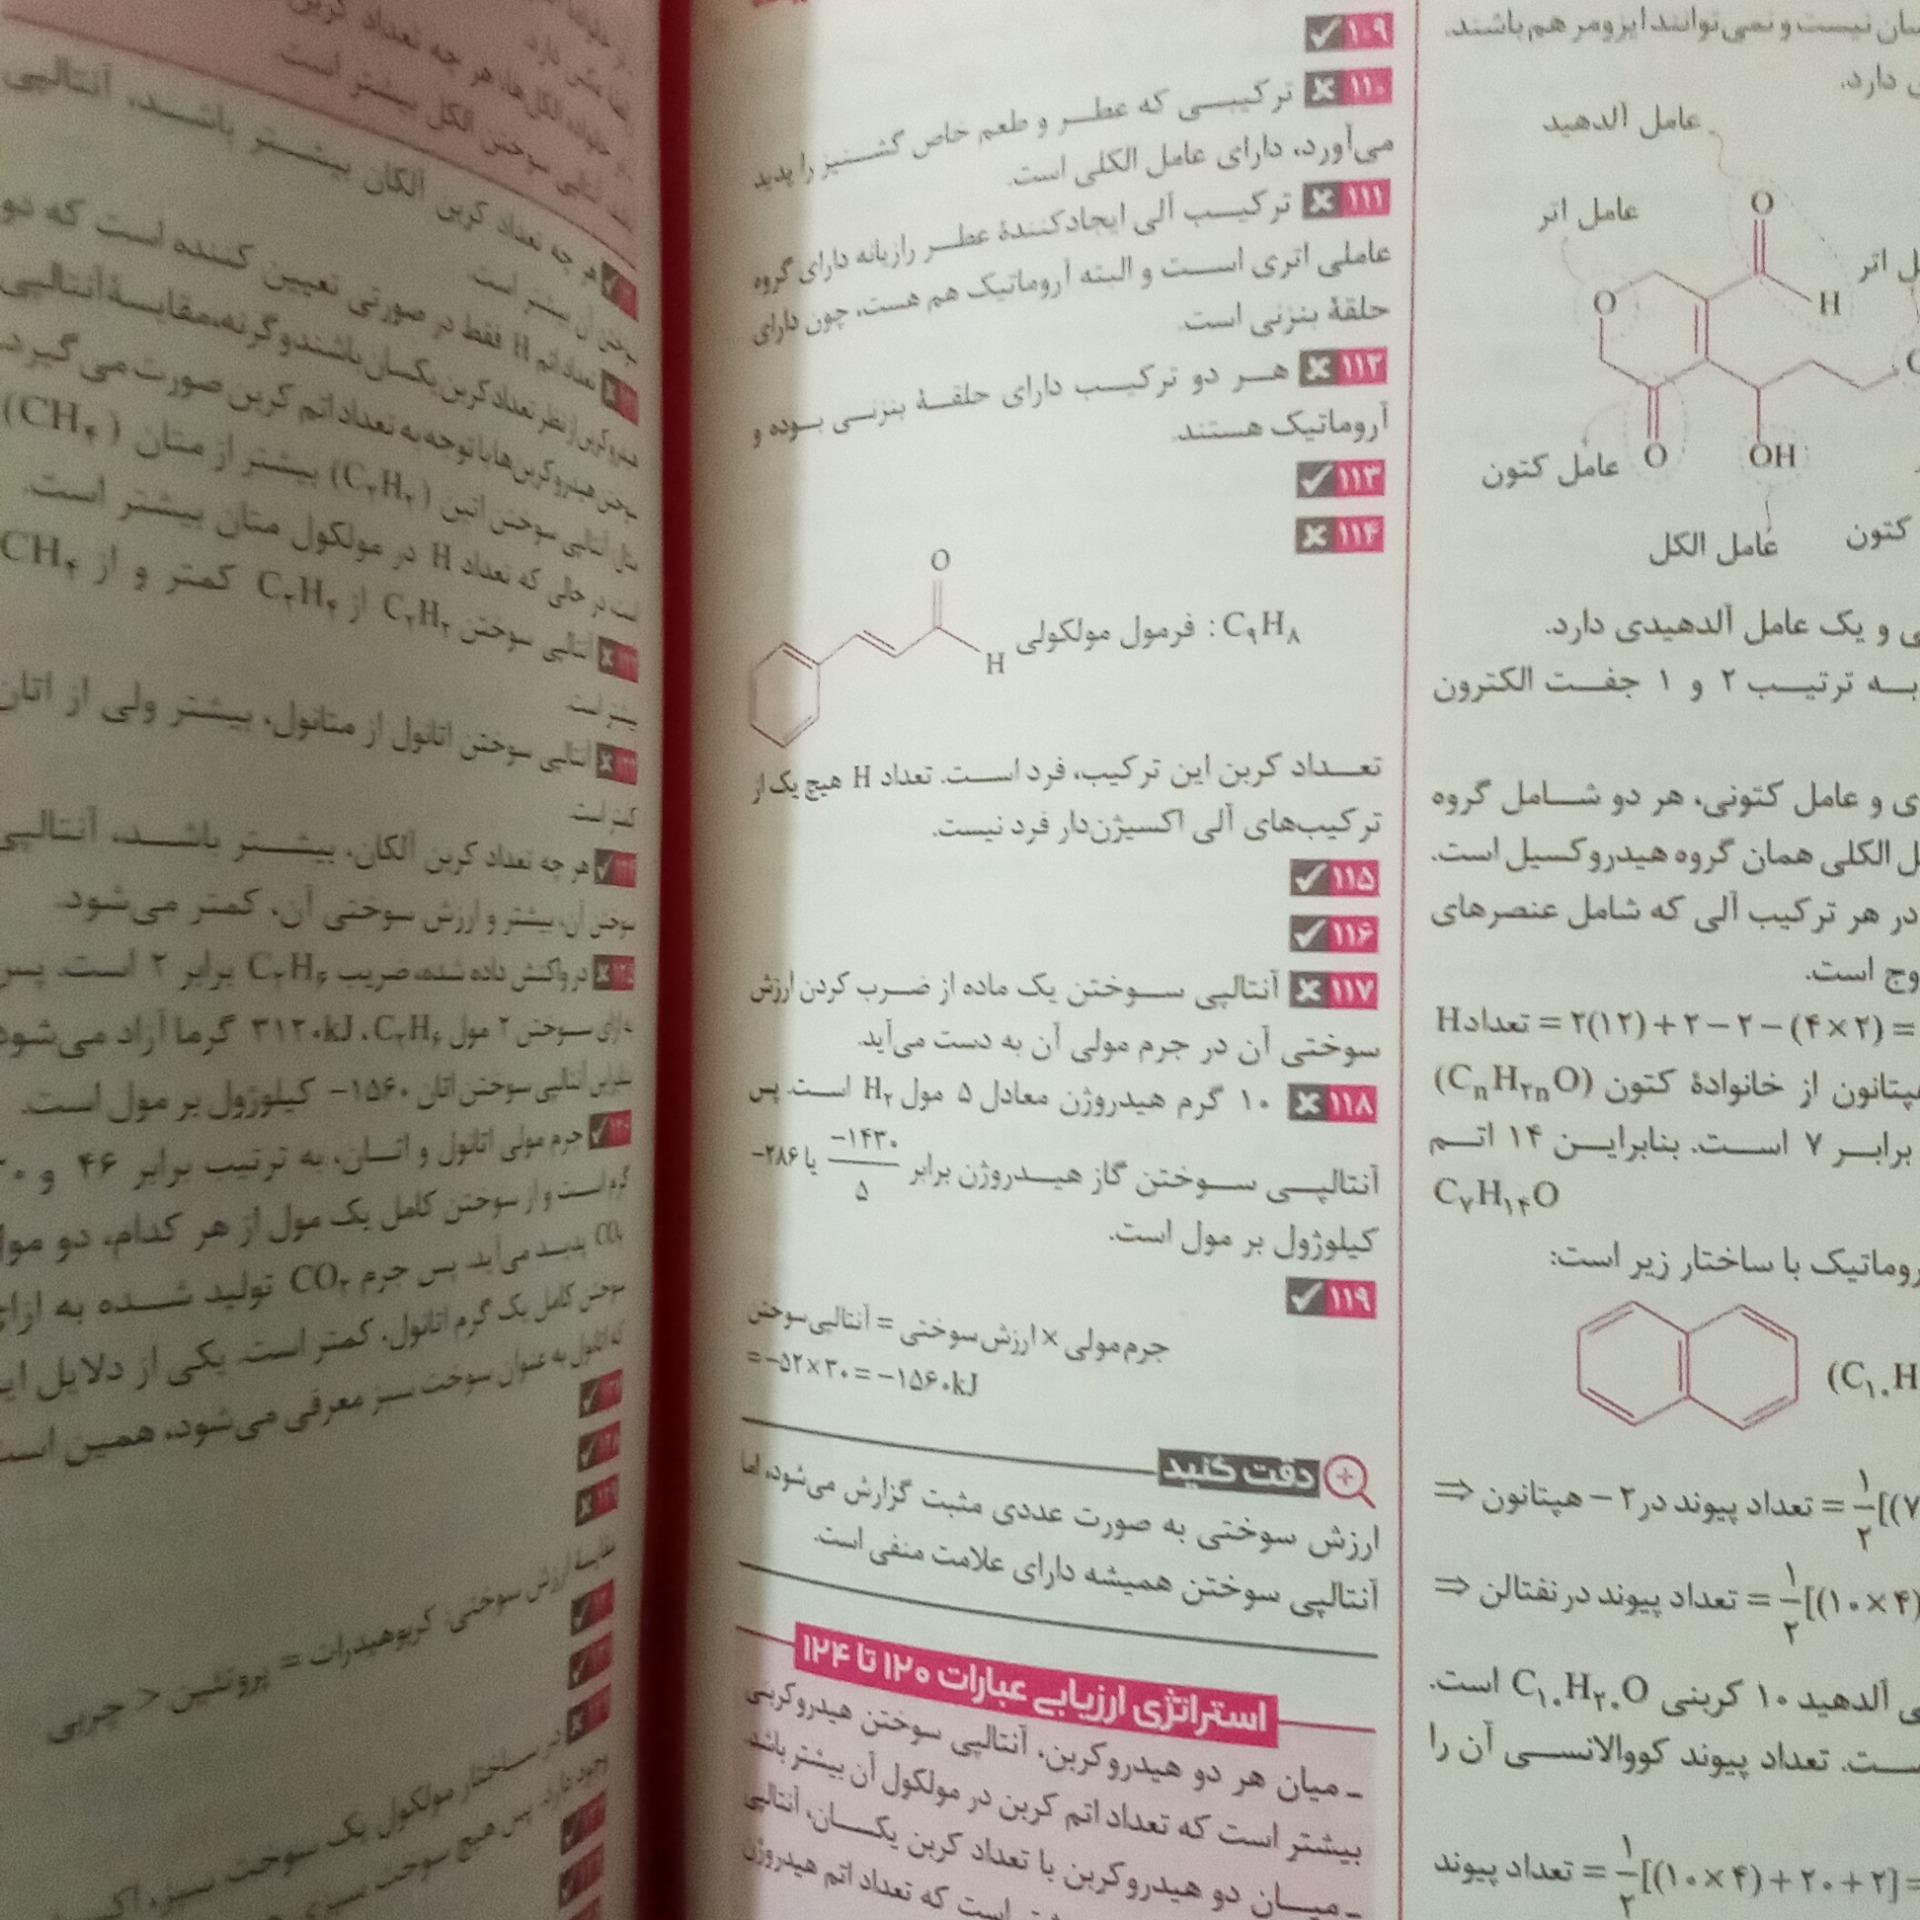 سان نیست و نمی‌توانند ایزومر هم باشند.
دارد.
عامل آلدهید
عامل اتر
O
H
O
O
OH
عامل کتون
عامل الکل
کتون
و یک عامل آلدهیدی دارد.
به ترتیب ۲ و ۱ جفت الکترون
و عامل کتونی، هر دو شامل گروه
الکلی همان گروه هیدروکسیل است.
در هر ترکیب آلی که شامل عنصرهای
وج است.
تعداد H = ۲(۱۲)+۲−۲−(۴×۲) =
هپتانون از خانوادهٔ کتون (CnH۲nO)
برابر ۷ است. بنابراین ۱۴ اتم
C۷H۱۴O
روماتیک با ساختار زیر است:
(C۱۰H
⇒ تعداد پیوند در ۲ – هپتانون = ۱/۲[(۷
⇒ تعداد پیوند در نفتالن = ۱/۲[(۱۰×۴)
آلدهید ۱۰ کربنی C۱۰H۲۰O است.
ست. تعداد پیوند کووالانسی آن را
تعداد پیوند = ۱/۲[(۱۰×۴)+۲۰+۲] =
۱۰۹ ✓
۱۱۰ × ترکیبی که عطر و طعم خاص گشنیز را پدید
می‌آورد، دارای عامل الکلی است.
۱۱۱ × ترکیب آلی ایجادکنندهٔ عطر رازیانه دارای گروه
عاملی اتری است و البته آروماتیک هم هست، چون دارای
حلقهٔ بنزنی است.
۱۱۲ × هر دو ترکیب دارای حلقهٔ بنزنی بوده و
آروماتیک هستند.
۱۱۳ ✓
۱۱۴ ×
O
H
فرمول مولکولی : C۹H۸
تعداد کربن این ترکیب، فرد است. تعداد H هیچ یک از
ترکیب‌های آلی اکسیژن‌دار فرد نیست.
۱۱۵ ✓
۱۱۶ ✓
۱۱۷ × آنتالپی سوختن یک ماده از ضرب کردن ارزش
سوختی آن در جرم مولی آن به دست می‌آید.
۱۱۸ × ۱۰ گرم هیدروژن معادل ۵ مول H۲ است. پس
آنتالپی سوختن گاز هیدروژن برابر −۱۴۳۰/۵ یا −۲۸۶
کیلوژول بر مول است.
۱۱۹ ✓
جرم مولی × ارزش سوختی = آنتالپی سوختن
= −۵۲×۳۰ = −۱۵۶۰kJ
دقت کنید
ارزش سوختی به صورت عددی مثبت گزارش می‌شود، اما
آنتالپی سوختن همیشه دارای علامت منفی است.
استراتژی ارزیابی عبارات ۱۲۰ تا ۱۲۴
ـ میان هر دو هیدروکربن، آنتالپی سوختن هیدروکربنی
بیشتر است که تعداد اتم کربن در مولکول آن بیشتر باشد.
ـ میان دو هیدروکربن با تعداد کربن یکسان، آنتالپی
است که تعداد اتم هیدروژن
در خانواده الکل‌ها، هر چه تعداد کربن
آنتالپی سوختن الکل بیشتر است.
✓ هر چه تعداد کربن آلکان بیشتر باشند، آنتالپی
سوختن آن بیشتر است.
× تعداد اتم H فقط در صورتی تعیین کننده است که دو
هیدروکربن از نظر تعداد کربن یکسان باشند وگرنه، مقایسهٔ آنتالپی
سوختن هیدروکربن‌ها با توجه به تعداد اتم کربن صورت می‌گیرد.
مثال آنتالپی سوختن اتین (C۲H۲) بیشتر از متان (CH۴)
است در حالی که تعداد H در مولکول متان بیشتر است.
× آنتالپی سوختن C۲H۲ از C۲H۴ کمتر و از CH۴
بیشتر است.
× آنتالپی سوختن اتانول از متانول، بیشتر ولی از اتان
کمتر است.
✓ هر چه تعداد کربن آلکان، بیشتر باشد، آنتالپی
سوختن آن، بیشتر و ارزش سوختی آن، کمتر می‌شود.
× در واکنش داده شده، ضریب C۲H۶ برابر ۲ است. پس
به ازای سوختن ۲ مول C۲H۶، ۳۱۲۰kJ گرما آزاد می‌شود
بنابراین آنتالپی سوختن اتان −۱۵۶۰ کیلوژول بر مول است.
✓ جرم مولی اتانول و اتان، به ترتیب برابر ۴۶ و ۳۰
گرم است و از سوختن کامل یک مول از هر کدام، دو مول
CO۲ پدید می‌آید. پس جرم CO۲ تولید شده به ازای
سوختن کامل یک گرم اتانول، کمتر است. یکی از دلایل این
که اتانول به عنوان سوخت سبز معرفی می‌شود، همین است
✓
۱۲۸ ✓
۱۲۹ ×
مقایسهٔ ارزش سوختی: کربوهیدرات = پروتئین < چربی
✓
✓
× در ساختار مولکول یک سوخت سبز،
وجود دارد. پس هیچ سوخت سبزی
✓
✓